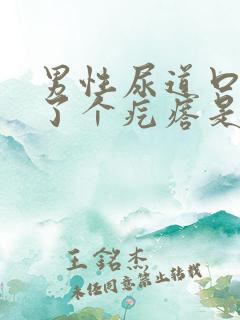 男性尿道口
了个疙瘩是
王銘杰
未经同意禁止转载